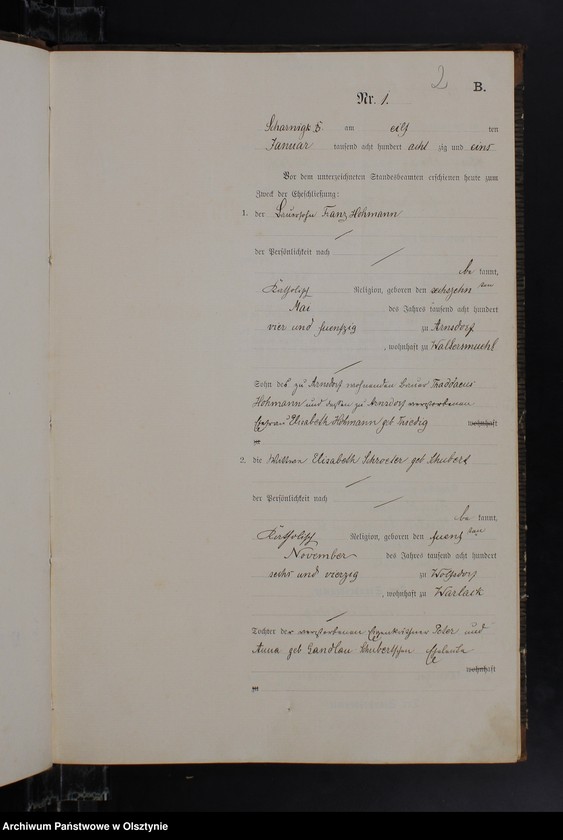 2
B.
Nr. 1.
Scharnigk am eilf ten
Januar tausend acht hundert acht zig und eins
Vor dem unterzeichneten Standesbeamten erschienen heute zum
Zweck der Eheschließung:
1. der Bauersohn Franz Hohmann
der Persönlichkeit nach
be kannt,
Katholisch Religion, geboren den sechszehn ten
Mai des Jahres tausend acht hundert
vier und fuenfzig zu Arnsdorf
, wohnhaft zu Waltersmuehl
Sohn des zu Arnsdorf wohnenden Bauer Thaddaeus
Hohmann und dessen zu Arnsdorf verstorbenen
Ehefrau Elisabeth Hohmann geb wohnhaft
zu
2. die Wittwe Elisabeth Schroeter geb Schubert
der Persönlichkeit nach
be kannt,
Katholisch Religion, geboren den fuenf ten
November des Jahres tausend acht hundert
sechs und vierzig zu Wolfsdorf
, wohnhaft zu Warlack
Tochter der verstorbenen Eigenkäthner Peter und
Anna geb Gandlau Schubertschen Eheleute
wohnhaft
zu
Archiwum Państwowe w Olsztynie